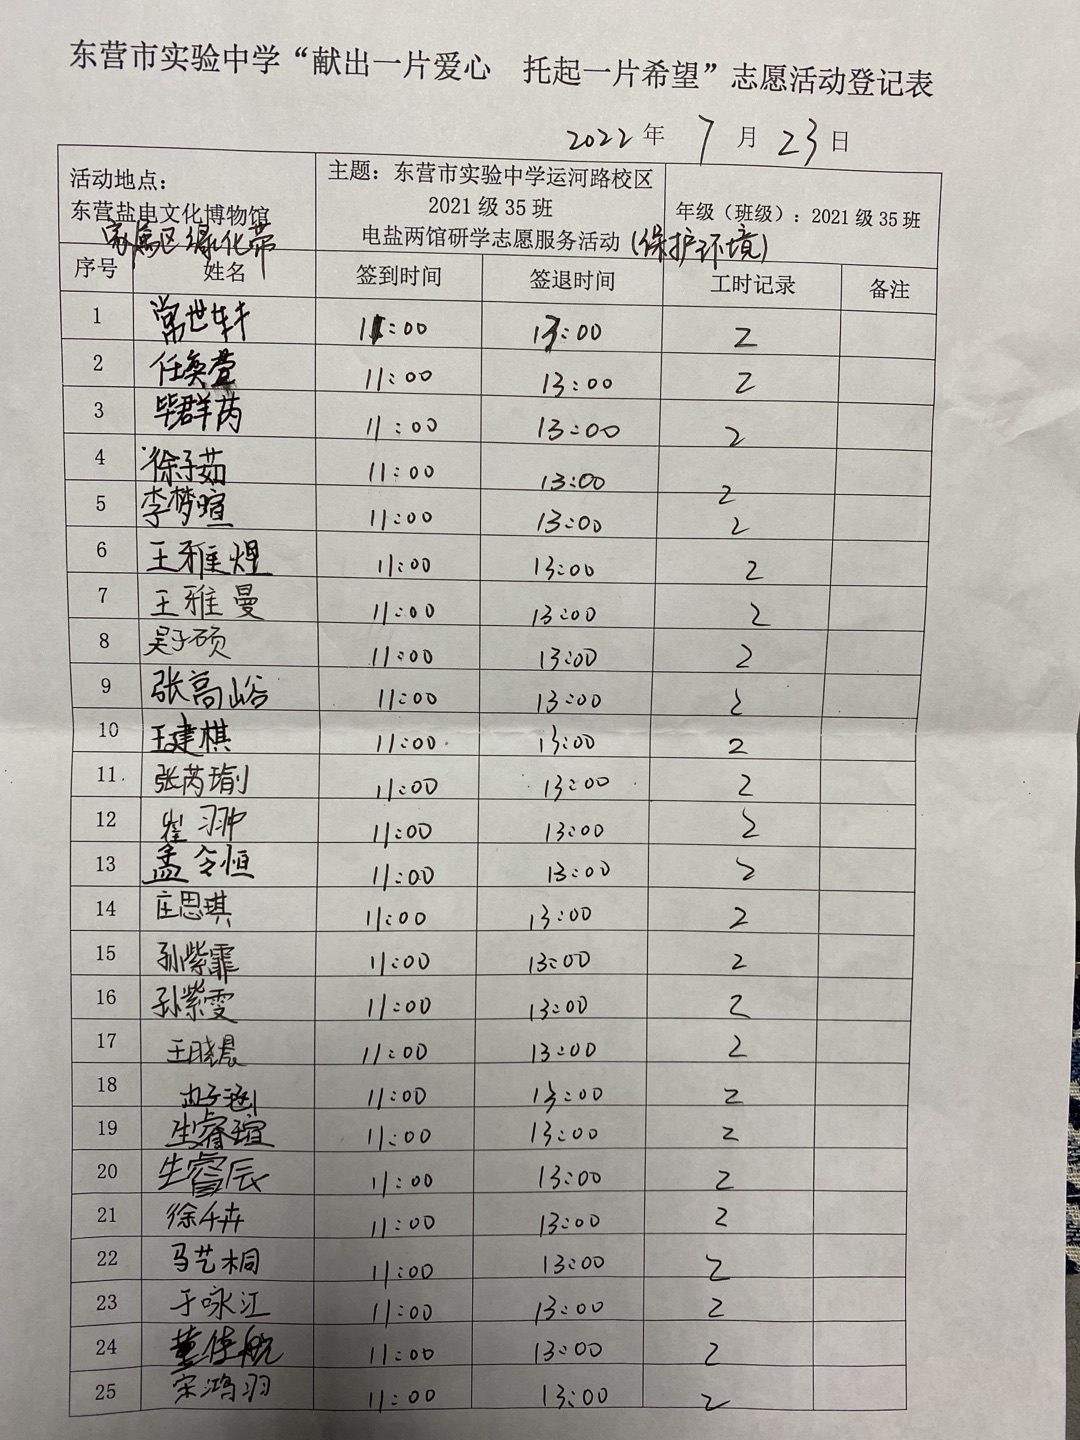 东营市实验中学“献出一片爱心 托起一片希望”志愿活动登记表
2022年 7月 23日
活动地点：
东营盐电文化博物馆
家属区绿化带
主题：东营市实验中学运河路校区
2021级35班
电盐两馆研学志愿服务活动(保护环境)
年级（班级）：2021级35班
序号 姓名 签到时间 签退时间 工时记录 备注
1 常世轩 11:00 13:00 2
2 任奂萱 11:00 13:00 2
3 毕群芮 11:00 13:00 2
4 徐子茹 11:00 13:00 2
5 李梦暄 11:00 13:00 2
6 王雅煜 11:00 13:00 2
7 王雅曼 11:00 13:00 2
8 吴子硕 11:00 13:00 2
9 张高峪 11:00 13:00 2
10 王建棋 11:00 13:00 2
11 张芮瑜 11:00 13:00 2
12 崔羽翀 11:00 13:00 2
13 孟令恒 11:00 13:00 2
14 庄思琪 11:00 13:00 2
15 孙紫霏 11:00 13:00 2
16 孙紫雯 11:00 13:00 2
17 王晓晨 11:00 13:00 2
18 11:00 13:00 2
19 生睿瑄 11:00 13:00 2
20 生睿辰 11:00 13:00 2
21 徐千卉 11:00 13:00 2
22 马艺桐 11:00 13:00 2
23 于咏江 11:00 13:00 2
24 11:00 13:00 2
25 宋鸿羽 11:00 13:00 2